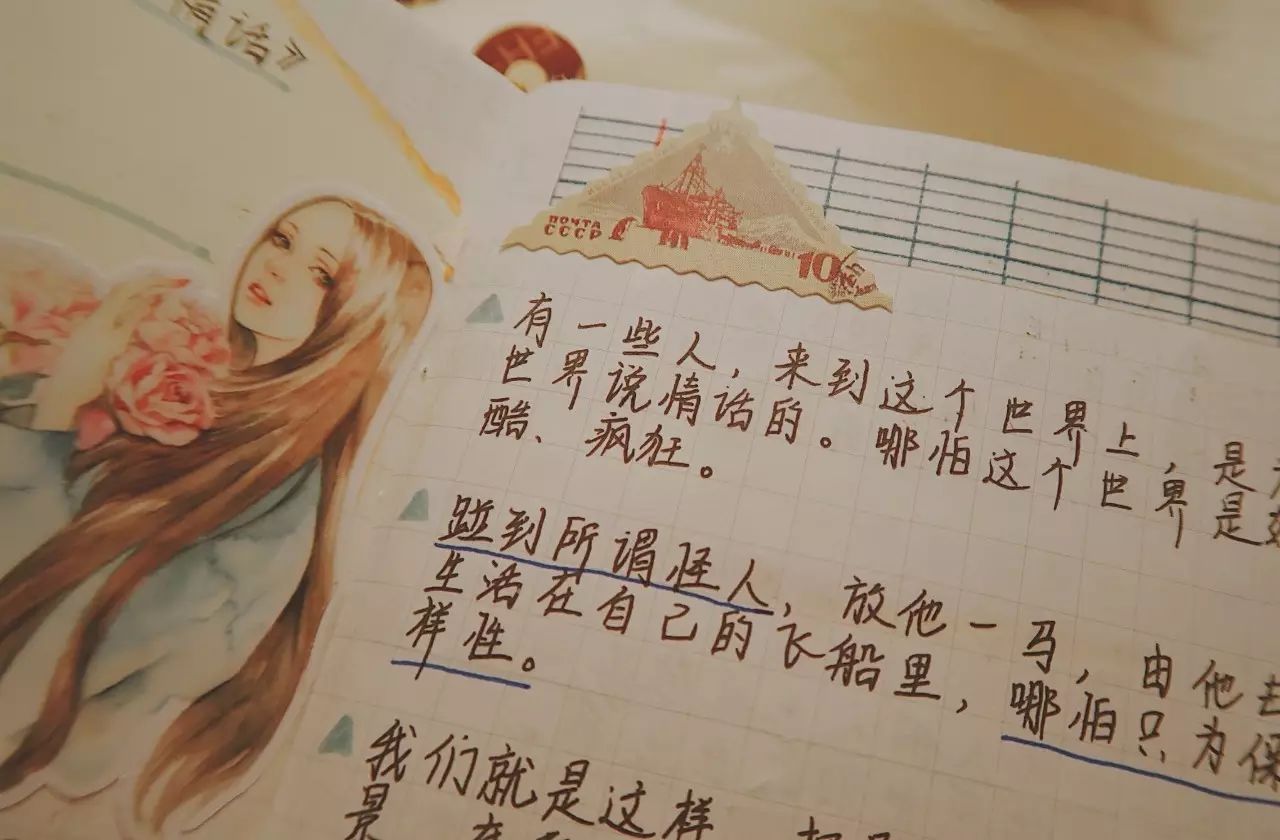 情话》
ПОЧТА
СССР
10
有一些人，来到这个世界上，是
世界说情话的。哪怕这个世界是
酷、疯狂。
碰到所谓怪人，放他一马，由他去
生活在自己的长船里，哪怕只为保
样性。
我们就是这样
景